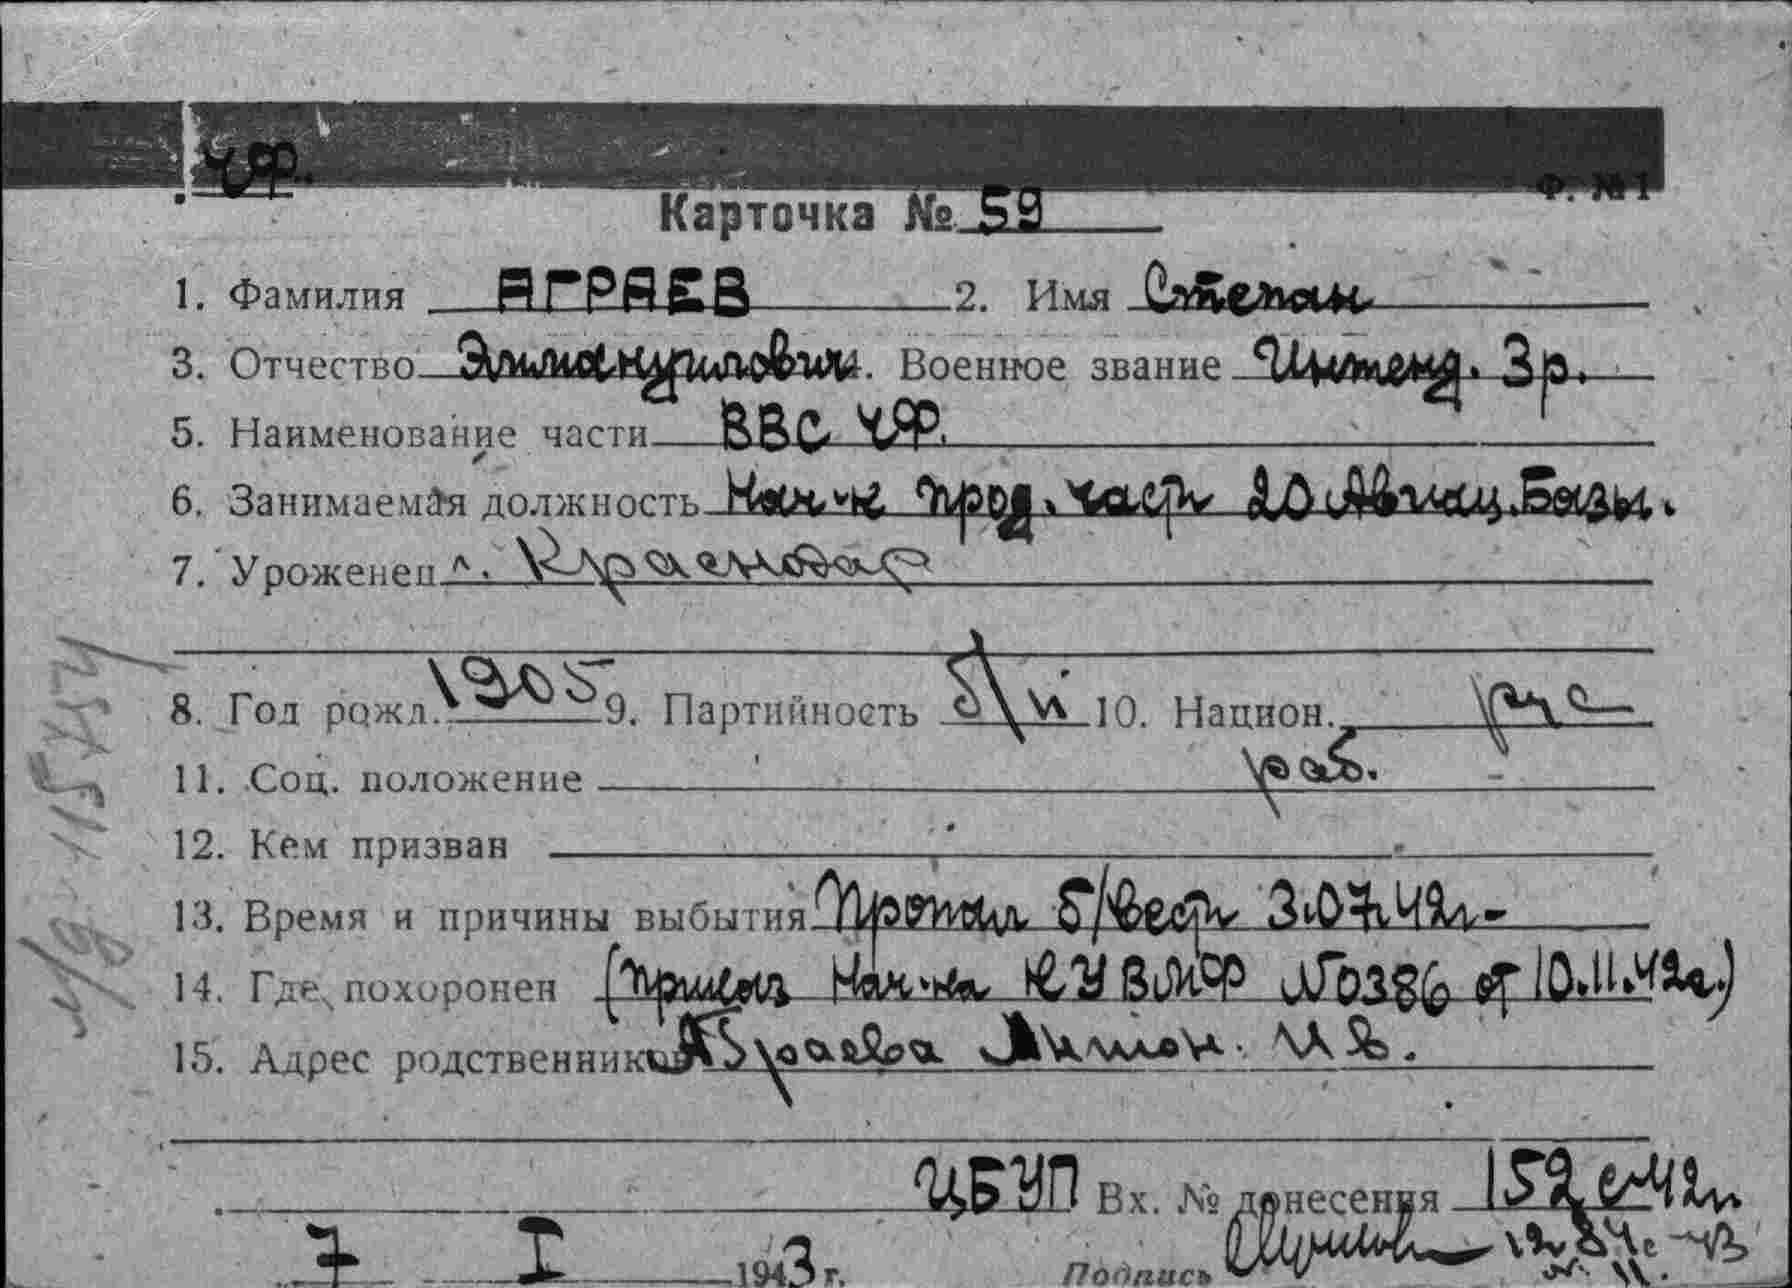 ЧФ.
Ф. №1
Карточка № 59
1. Фамилия АГРАЕВ 2. Имя Степан
3. Отчество Эммануилович. Военное звание Интенд. 3 р.
5. Наименование части ВВС ЧФ.
6. Занимаемая должность Нач-к прод. части 20 Авиац. Базы.
7. Уроженец г. Краснодар
8. Год рожд. 1905 9. Партийность б/п 10. Национ. рус
11. Соц. положение раб.
12. Кем призван
13. Время и причины выбытия Пропал б/вести 3.07.42г-
14. Где похоронен (приказ Нач-ка КУ ВМФ №0386 от 10.11.42г.)
15. Адрес родственников Аграева
ЦБУП Вх. № донесения 152 с-42г
7 I 1943 г. Подпись